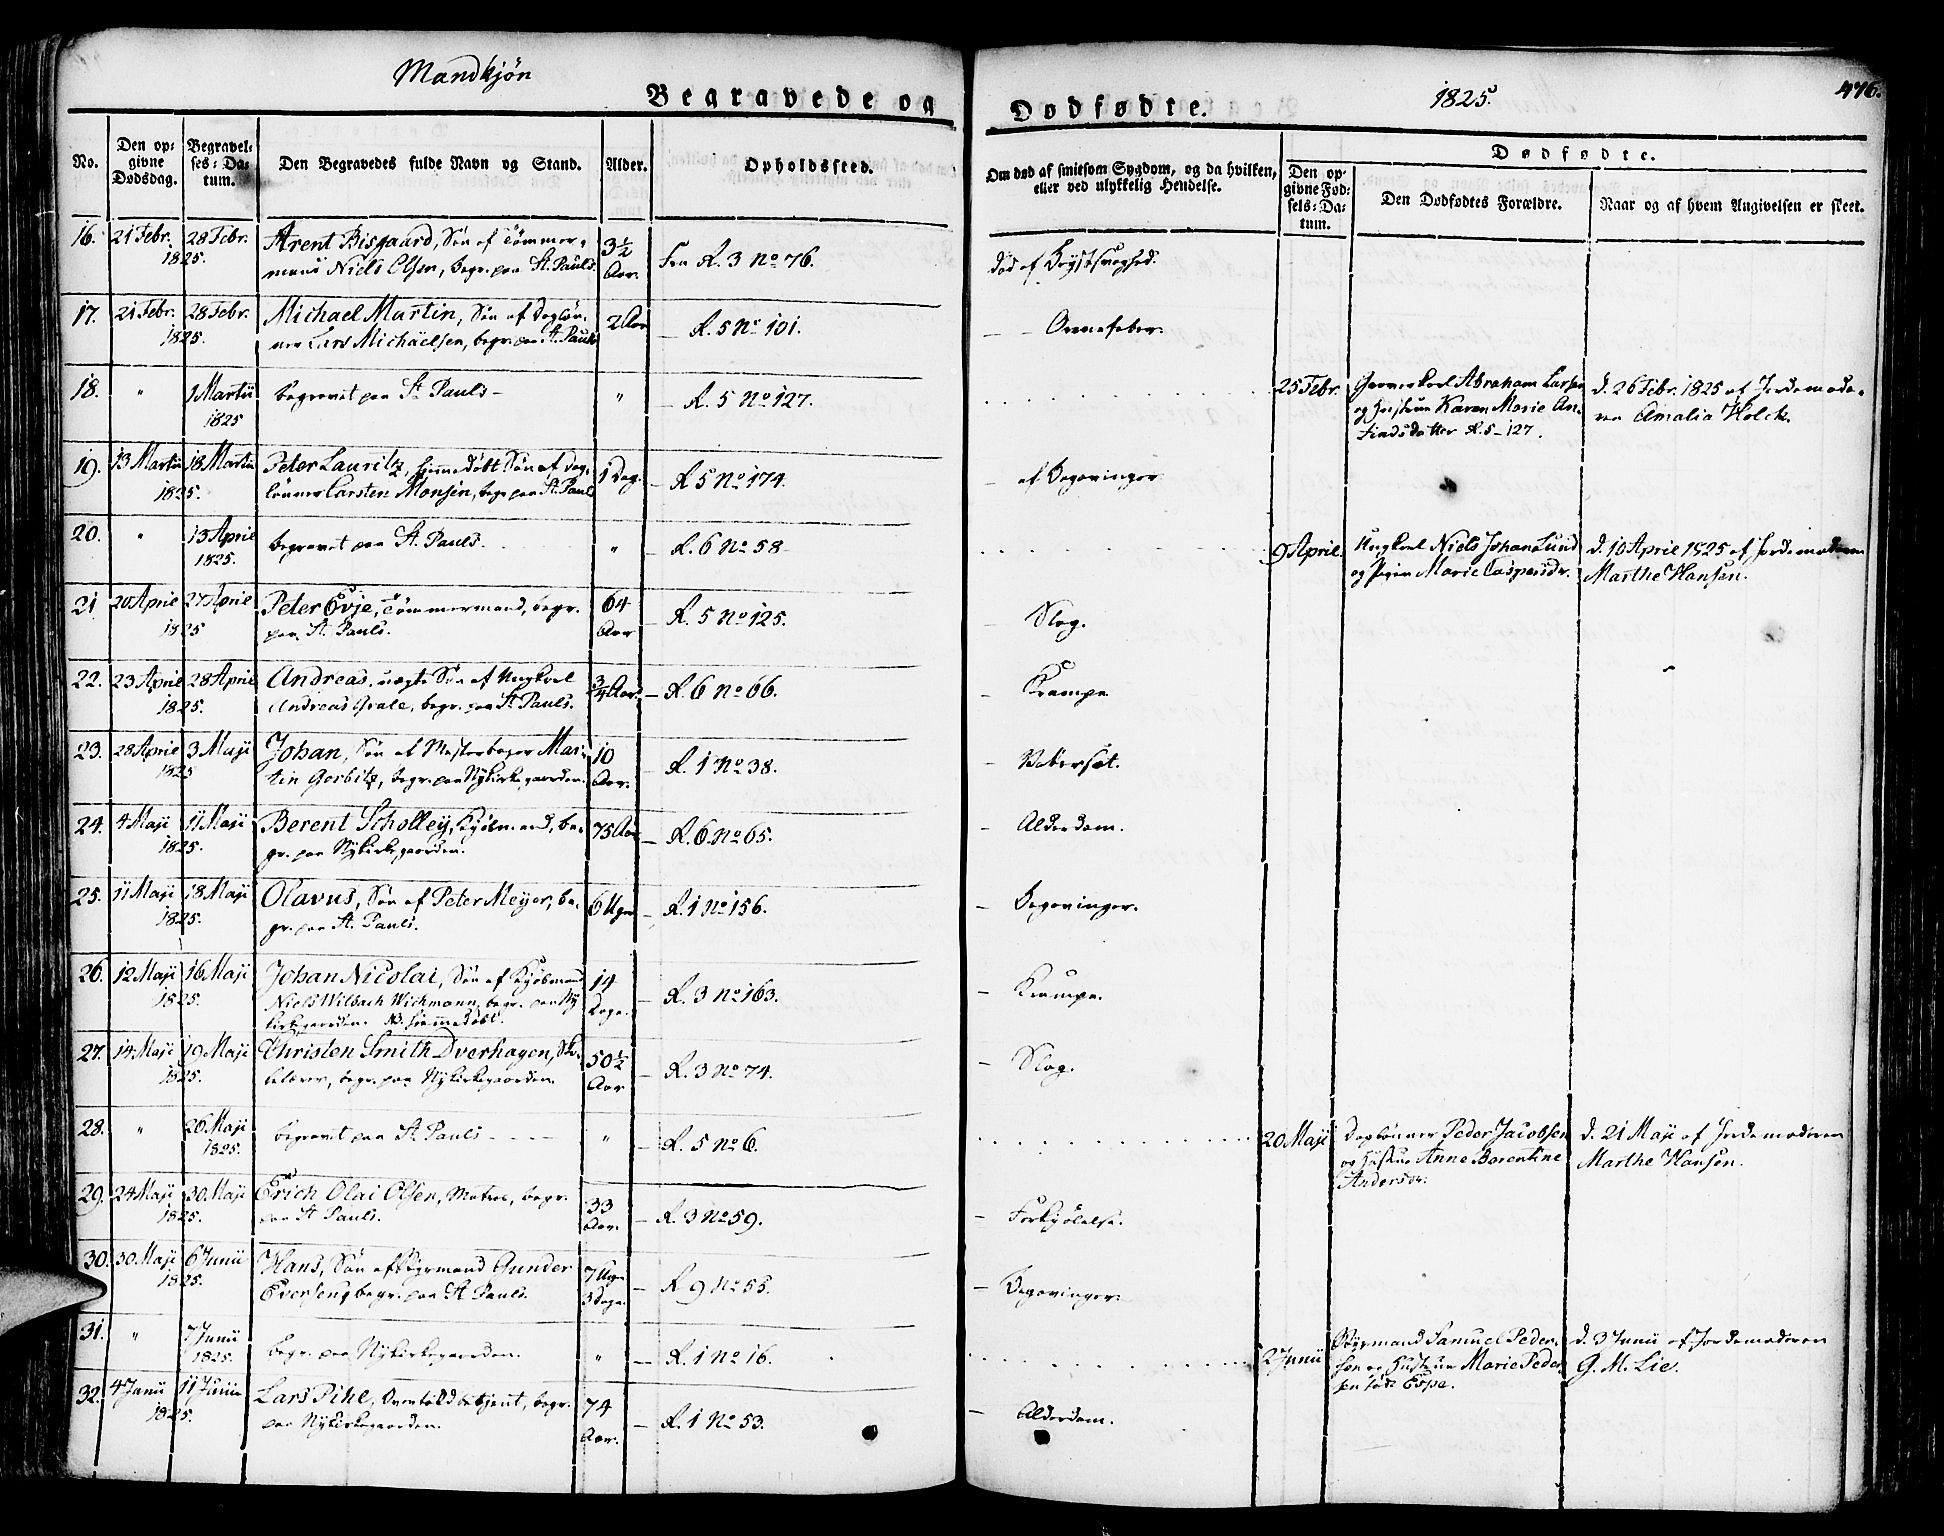 Mandkjøn
Begravede og
Dødfødte.
1825.
476.
No.
Den op-
givne
Dødsdag.
Begravel-
ses-Da-
tum.
Den Begravedes fulde Navn og Stand.
Alder.
Opholdssted.
Om død af smitsom Sygdom, og da hvilken,
eller ved ulykkelig Hendelse.
Dødfødte.
Den op-
givne Fød-
sels-Da-
tum.
Den Dødfødtes Forældre.
Naar og af hvem Angivelsen er skeet.
16. 21 Febr. 28 Febr. Arent Bisgaard, Søn af Tømmer- 3½
1825. mand Niels Olsen, begr. paa St. Pauls. Aar. R. 3 No 76. død af Brystsvaghed.
17. 21 Febr. 28 Febr. Michael Martin, Søn af Dagløn- 2 Aar
1825. ner Lars Michaelsen, begr. paa St. Pauls — R. 5 No 101. — —
18. " 1 Martii begravet paa St. Pauls — " — R. 5 No 127. 25 Febr. Abraham Larsen d. 26 Febr. 1825 af Jordemode-
1825 og Hustrue Karen Marie An- ren Amalia Holck.
findsdatter R. 5 - 127.
19. 13 Martii 18 Martii Peter Lauritz, hjemmedøbt Søn af Dag- 1 Dag.
1825. lønner Carsten Monsen, begr. paa St. Pauls — R. 5 No 174. — af Begavinger
20. " 13 April begravet paa St. Pauls. " — R. 6 No 58 9 April Ungkarl Niels Johan Lund d. 10 April 1825 af Jordemoderen
1825. og Pigen Marie Caspersdr. Marthe Hansen.
21 20 April 27 April Peter Evje, Tømmermand, begr. 64
1825 paa St. Pauls. Aar — R. 5 No 125. — Slag.
22. 23 April 28 April Andreas, uægte Søn af Ungkarl ¾ Aar
1825. Andreas Grale, begr. paa St. Pauls. — R. 6 No 66. — Krampe
23. 28 April 3 Maji Johan, Søn af Mesterbager Mar- 10
1825 tin Gorbitz, begr. paa Nykirkegaarden. Aar. — R. 1 No 38. — Vatersot.
24. 4 Maji 11 Maji Berent Scholley, Kjøbmand, be- 75 Aar
1825. gr. paa Nykirkegaarden. — R. 6. No 65. — Alderdom.
25. 11 Maji 18 Maji Olavus, Søn af Peter Meyer, be- 6 Uger
1825. gr. paa St. Pauls. — R. 1 No 156. — Begavinger.
26. 12 Maji 16 Maji Johan Nicolai, Søn af Kjøbmand 14
1825. Niels Wilbach Wichmann, begr. paa Ny Dage. — R. 3 No 163. — Krampe.
kirkegaarden. NB. hjemmedøbt.
27. 14 Maji 19 Maji Christen Smith Dverhagen, Sko- 50½
1825. lelærer, begr. paa Nykirkegaarden. Aar — R. 3 No 74. — Slag.
28. " 26 Maji begravet paa St. Pauls — " — R. 5 No 6. 20 Maji Daglønner Peder Jacobsen d. 21 Maji af Jordemoderen
1825. og Hustrue Anne Berentine Marthe Hansen.
Andersdr.
29. 24 Maji 30 Maji Erich Olai Olsen, Matros, begr. 33
1825. paa St. Pauls. Aar. — R. 3 No 59. — Forkjølelse.
30. 30 Maji 6 Junii Hans, Søn af Styrmand Gunder 7 Uger
1825. Eversen, begr. paa St. Pauls. 3 Dage. — R 9 No 55. — Begavinger.
31. " 7 Junii begr. paa Nykirkegaarden. " — R. 1 No 16. 2 Junii Styrmand Samuel Peder- d. 3 Junii af Jordemoderen
1825. sen og Hustrue Marie Peder- G. M. Lie.
sen født Espe.
32. 4 Junii 11 Junii Lars Pihl, Overtoldbetjent, begr. 74
1825. paa Nykirkegaarden. Aar. — R. 1 No 53. — Alderdom.